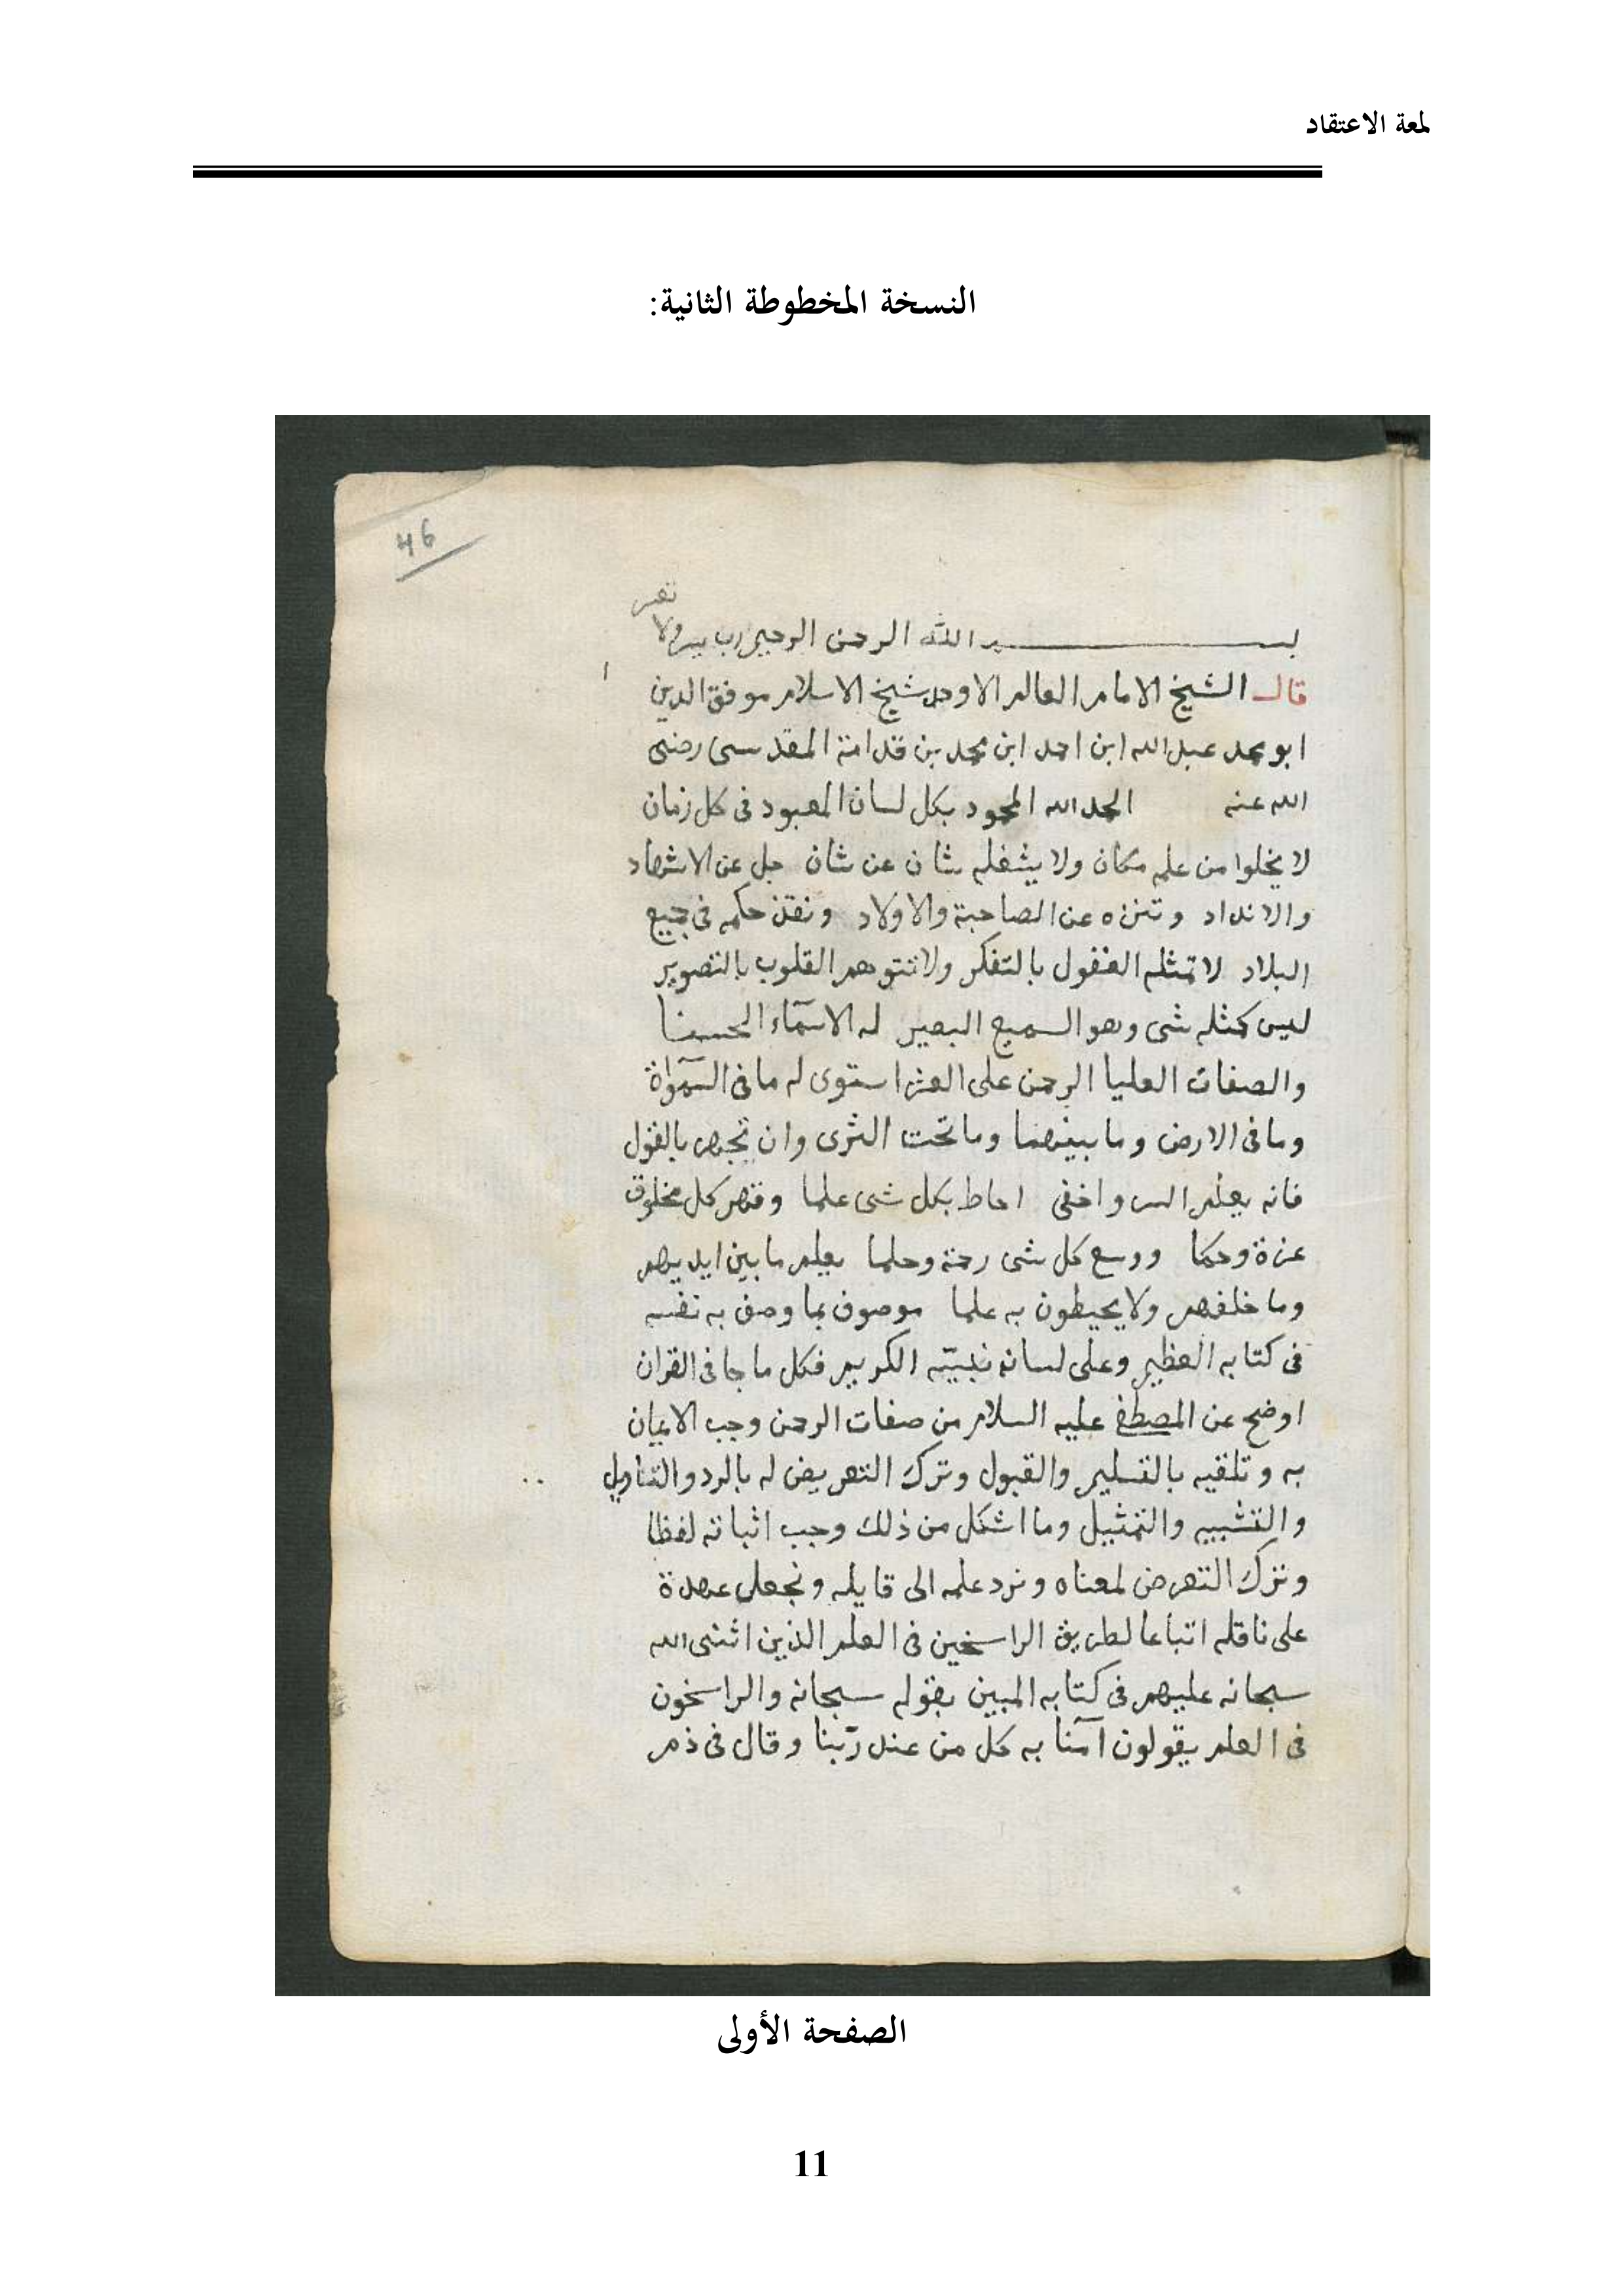 لمعة الاعتقاد
النسخة المخطوطة الثانية:
46
تعسر
بسم الله الرحمن الرحيم رب يسر ولا
قال الشيخ الامام العالم الاوحد شيخ الاسلام موفق الدين
ابو محمد عبد الله ابن احمد ابن محمد بن قدامة المقدسى رضى
الله عنه الحمد لله المحمود بكل لسان المعبود فى كل زمان
لا يخلوا من علمه مكان ولا يشغله شان عن شان جل عن الاشهاد
والانداد وتنزه عن الصاحبة والاولاد ونفذ حكمه فى جميع
البلاد لا تمثله العقول بالتفكر ولا تتوهمه القلوب بالتصوير
ليس كمثله شى وهو السميع البصير له الاسمآء الحسنا
والصفات العليا الرحمن على العرش استوى له ما فى السمواة
وما فى الارض وما بينهما وما تحت الثرى وان تجهر بالقول
فانه يعلم السر واخفى احاط بكل شى علما وقهر كل مخلوق
عزة وحكما ووسع كل شى رحمة وحلما يعلم ما بين ايديهم
وما خلفهم ولا يحيطون به علما موصوف بما وصف به نفسه
فى كتابه العظيم وعلى لسانه نبيّه الكريم فكل ما جا فى القران
اوضح عن المصطفى عليه السلام من صفات الرحمن وجب الايمان
به وتلقيه بالتسليم والقبول وترك التعريض له بالرد والتاويل
والتشبيه والتمثيل وما اشكل من ذلك وجب اثباته لفظا
ونترك التعرض لمعناه ونرد علمه الى قايله ونجعل عهدة
على ناقله اتباعا لطريق الراسخين فى العلم الذين اثنى الله
سبحانه عليهم فى كتابه المبين بقوله سبحانه والراسخون
فى العلم يقولون آمنا به كل من عند ربّنا وقال فى ذم
الصفحة الأولى
11